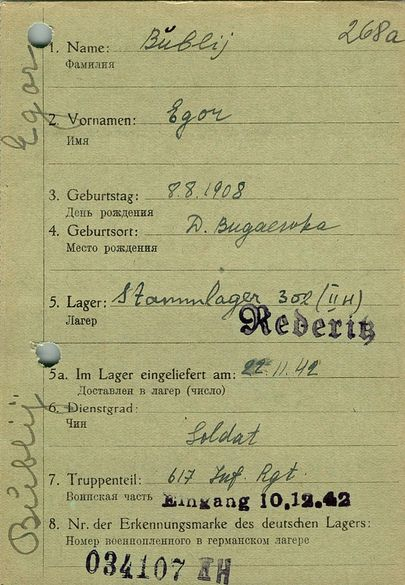 268a
1. Name: Bŭblij
Фамилия
2. Vornamen: Egor
Имя
3. Geburtstag: 8.8.1908
День рождения
4. Geburtsort: D.
Место рождения
5. Lager: Stammlager 302 (II H)
Лагер
Rederitz
5a. Im Lager eingeliefert am: 22.11.42
Доставлен в лагер (число)
6. Dienstgrad:
Чин
Soldat
7. Truppenteil: 617 Inf. Rgt.
Воинская часть Eingang 10.12.42
8. Nr. der Erkennungsmarke des deutschen Lagers:
Номер военнопленного в германском лагере
034107 IIH
Egor
Bŭblij